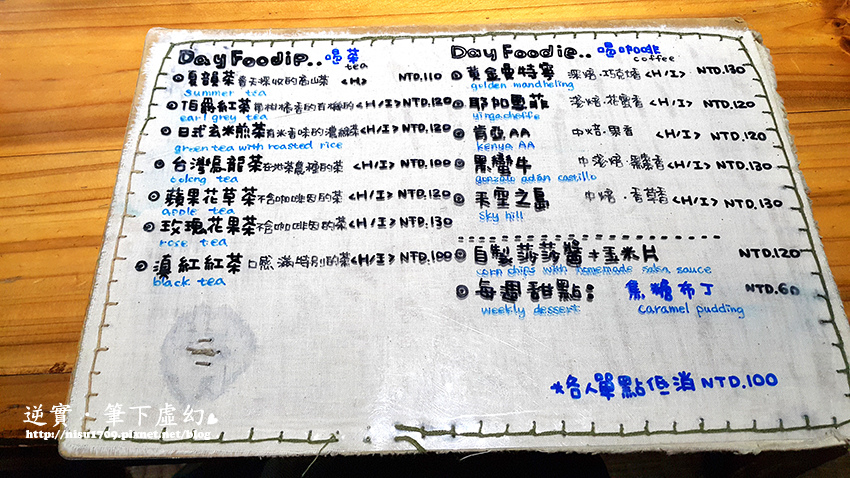 Day Foodie.. 喝茶
tea
夏韻茶 春天採收的高山茶 <H> NTD.110
summer tea
伯爵紅茶 有柑橘香的有機的 <H/I> NTD.120
earl grey tea
日式玄米煎茶 有米香味的濃綠茶 <H/I> NTD.120
green tea with roasted rice
台灣烏龍茶 在地茶農種的茶 <H/I> NTD.100
oolong tea
蘋果花草茶 不含咖啡因的茶 <H/I> NTD.120
apple tea
玫瑰花果茶 不含咖啡因的茶 <H/I> NTD.130
rose tea
滇紅紅茶 口感滿特別的茶 <H/I> NTD.100
black tea
Day Foodie.. 喝咖啡
coffee
黃金曼特寧 深焙.巧克力香 <H/I> NTD.130
golden mandheling
耶加雪菲 淺焙.花蜜香 <H/I> NTD.120
yirgacheffe
肯亞AA 中焙.果香 <H/I> NTD.120
kenya AA
黑蠻牛 <H/I> NTD.130
gonzalo adán castillo
天空之島 中焙.香草香 <H/I> NTD.130
sky hill
自製莎莎醬+玉米片 NTD.120
corn chips with homemade salsa sauce
每週甜點: 焦糖布丁 NTD.60
weekly dessert caramel pudding
*各人單點低消NTD.100
逆實·筆下虛幻
http://nisu1709.pixnet.net/blog